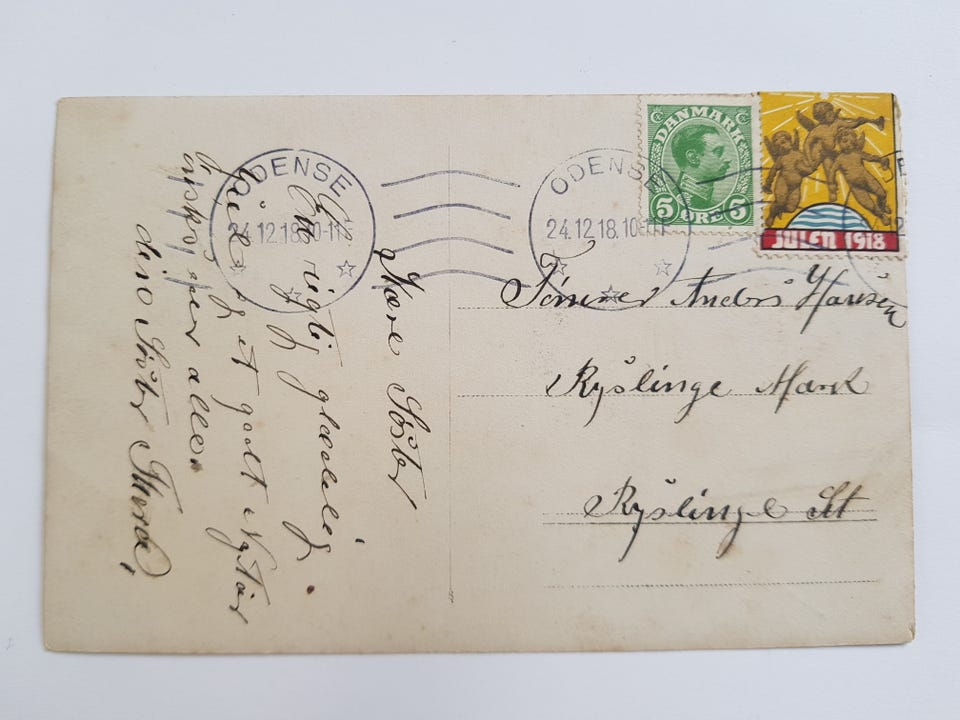 ODENSE
24.12.18.10-11
ODENSE
24.12.18.10-11
DANMARK
5 ØRE 5
JULEN 1918
Kære Søster
En rigtig glædelig
Jul og et godt Nytår
ønskes eder alle.
din Søster Thora,
Tømrer Anders Hansen
Ryslinge Mark
Ryslinge St